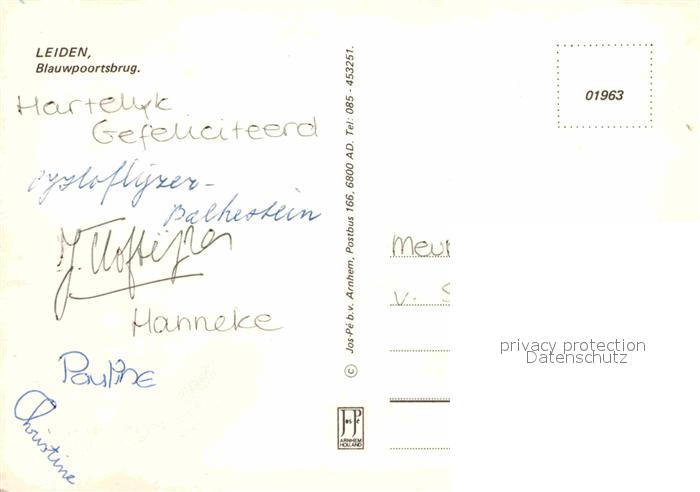 LEIDEN,
Blauwpoortsbrug.
Hartelijk
Gefeliciteerd
Hanneke
Pauline
Christine
© Jos-Pé b.v. Arnhem, Postbus 166, 6800 AD. Tel: 085 - 453251.
Jos Pé
ARNHEM
HOLLAND
01963
v. S
privacy protection
Datenschutz